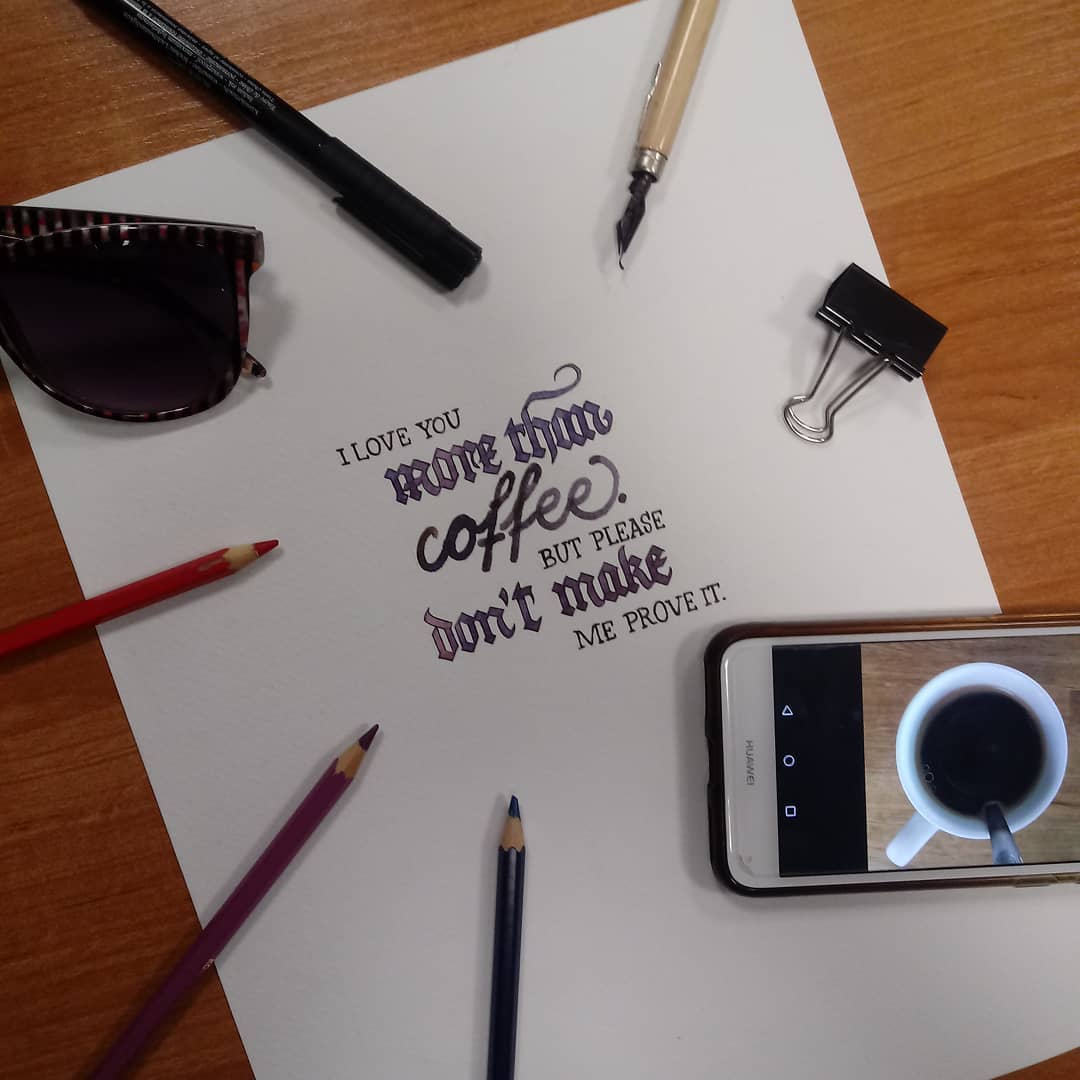 I LOVE YOU
more than
coffee.
BUT PLEASE
don't make
ME PROVE IT.
HUAWEI